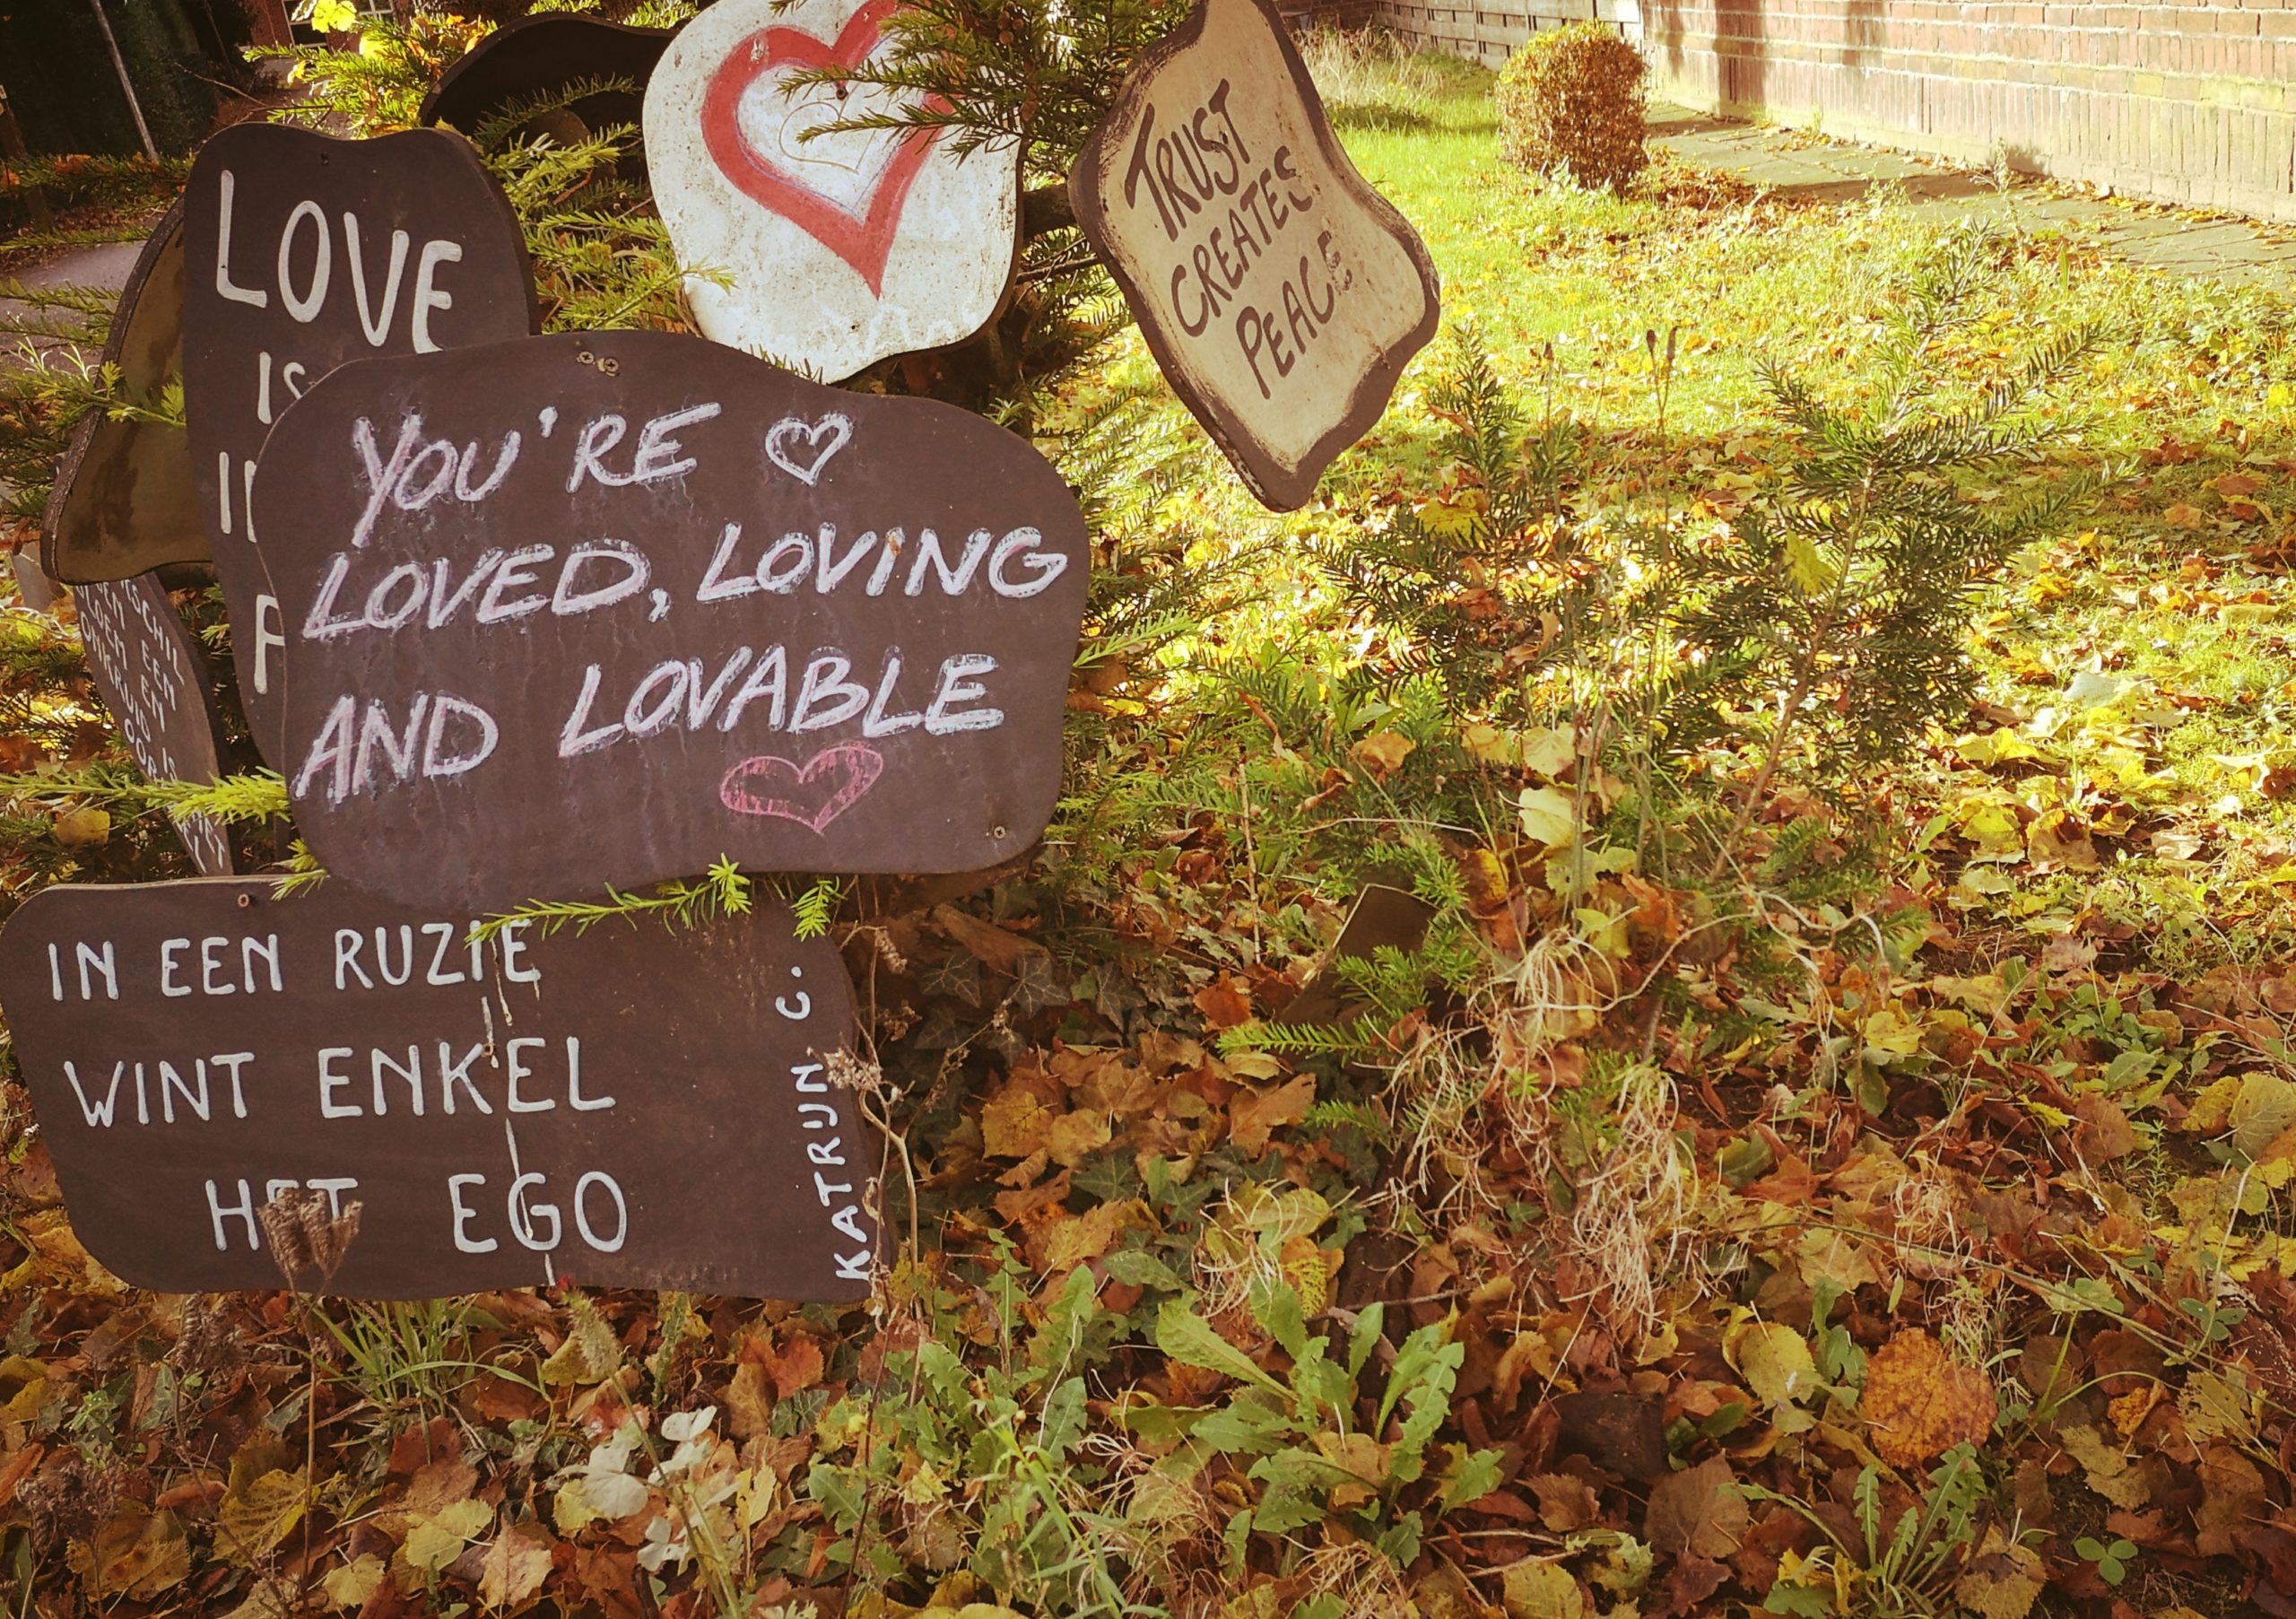 LOVE
IS
TRUST
CREATES
PEACE
YOU'RE
LOVED, LOVING
AND LOVABLE
EEN
EN
ONKRUID IS
IN EEN RUZIE
WINT ENKEL
HET EGO
KATRIJN C.